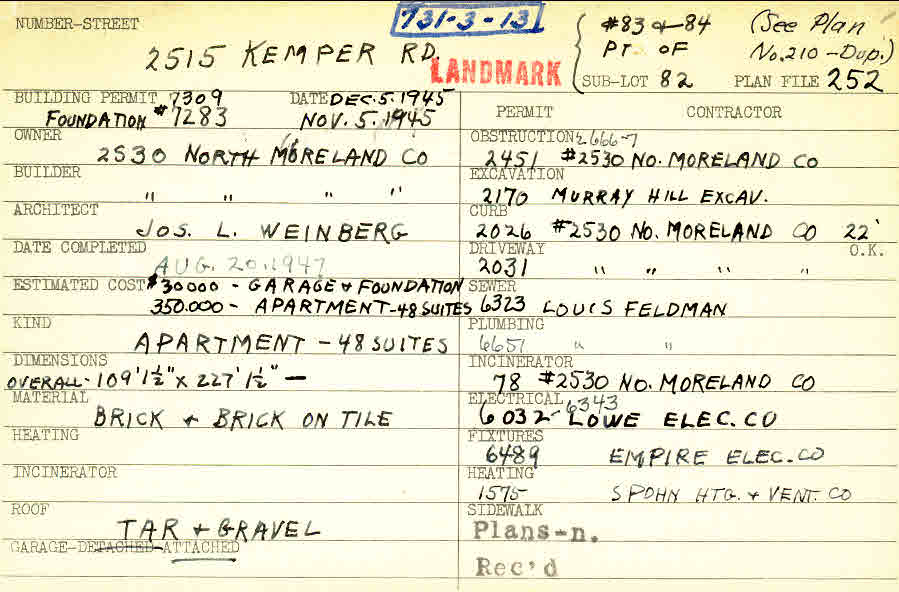 NUMBER-STREET
731-3-13
2515 KEMPER RD.
LANDMARK
#83 & 84
PT OF
SUB-LOT 82
(See Plan
No. 210 - Dup.)
PLAN FILE 252
BUILDING PERMIT 7309 DATE DEC. 5. 1945
FOUNDATION #7283 NOV. 5. 1945
OWNER
2530 NORTH MORELAND CO
BUILDER
" " " "
ARCHITECT
JOS. L. WEINBERG
DATE COMPLETED
AUG. 20. 1947
ESTIMATED COST $30000 - GARAGE & FOUNDATION
350.000 - APARTMENT - 48 SUITES
KIND
APARTMENT - 48 SUITES
DIMENSIONS
OVERALL - 109' 1½" X 227' 1½" —
MATERIAL
BRICK & BRICK ON TILE
HEATING
INCINERATOR
ROOF
TAR & GRAVEL
GARAGE-DETACHED-ATTACHED
PERMIT CONTRACTOR
OBSTRUCTION 2666-7
2451 #2530 NO. MORELAND CO
EXCAVATION
2170 MURRAY HILL EXCAV.
CURB
2026 #2530 NO. MORELAND CO 22'
DRIVEWAY O.K.
2031 " " " "
SEWER
6323 LOUIS FELDMAN
PLUMBING
6651 " "
INCINERATOR
78 #2530 NO. MORELAND CO
ELECTRICAL 6343
6032 - LOWE ELEC. CO
FIXTURES
6489 EMPIRE ELEC. CO
HEATING
1575 SPOHN HTG. & VENT. CO
SIDEWALK
Plans-n.
Rec'd